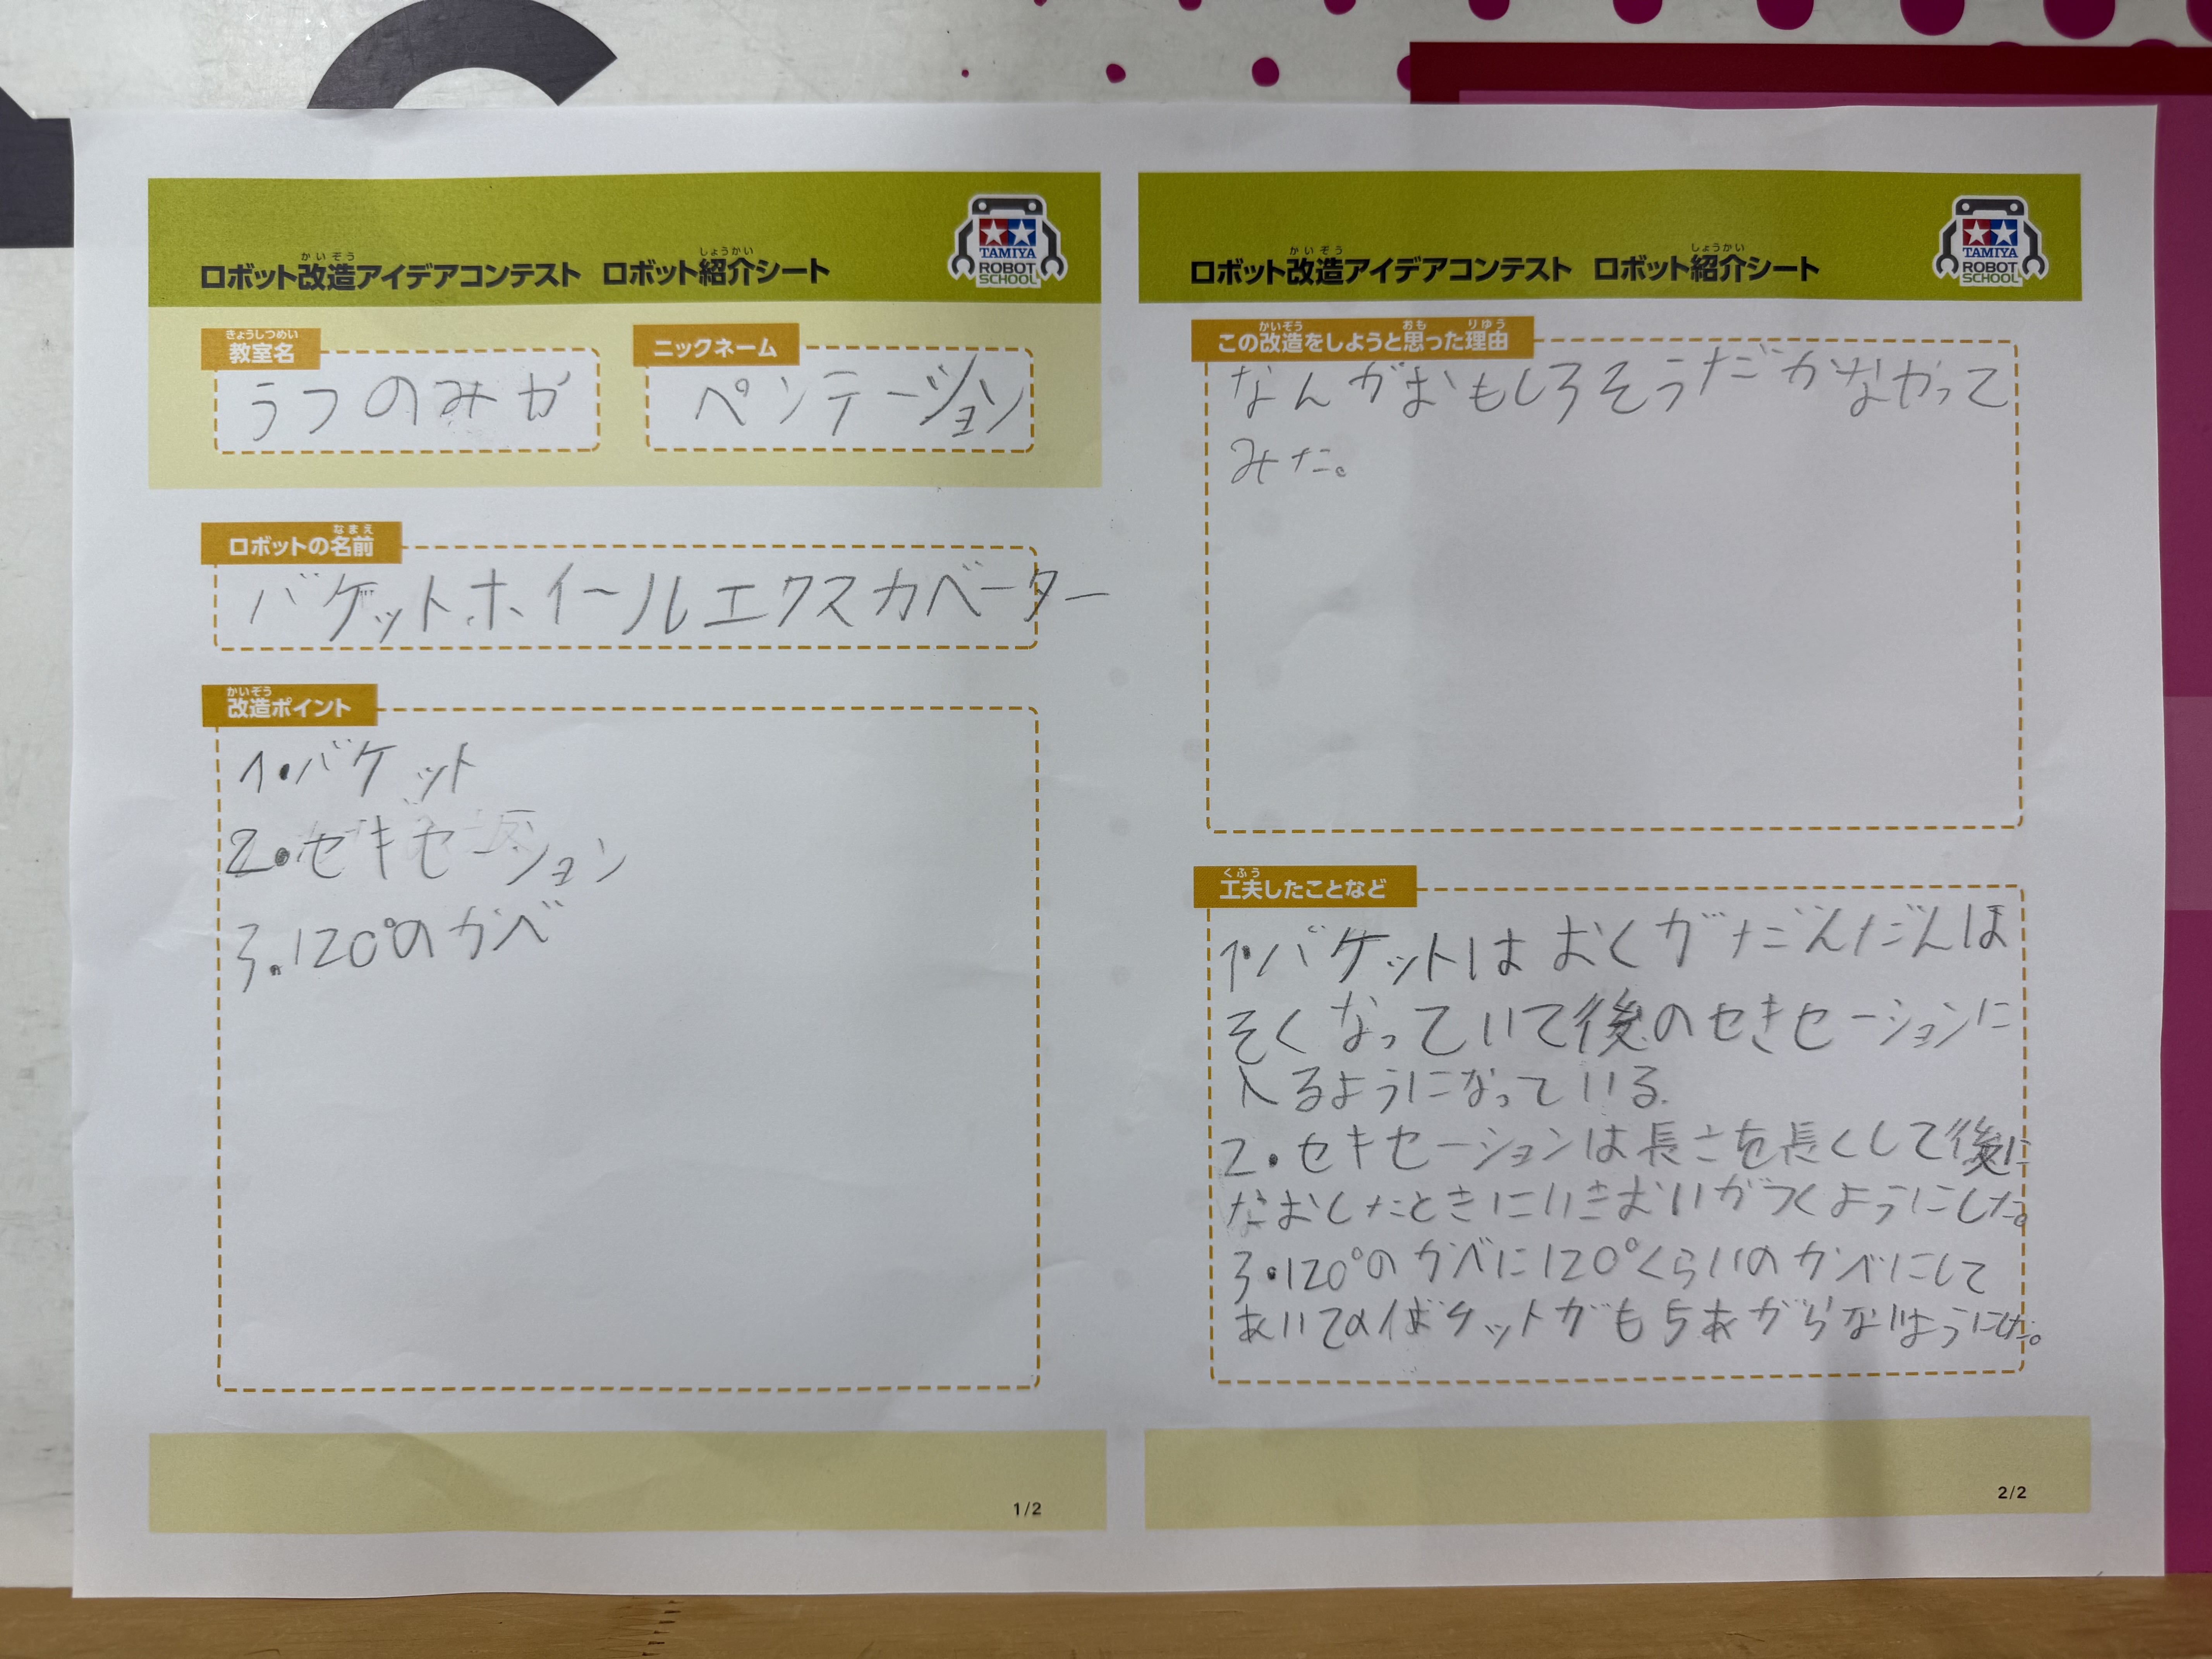 ロボット改造アイデアコンテスト ロボット紹介シート
かいぞう しょうかい
TAMIYA
ROBOT
SCHOOL
きょうしつめい
教室名
うつのみか
ニックネーム
ペンテーション
なまえ
ロボットの名前
バケットホイールエクスカベーター
かいぞう
改造ポイント
1.バケット
2.セキセーション
3.120°のかべ
1/2
ロボット改造アイデアコンテスト ロボット紹介シート
かいぞう しょうかい
TAMIYA
ROBOT
SCHOOL
かいぞう おも りゆう
この改造をしようと思った理由
なんかおもしろそうだかなやって
みた。
くふう
工夫したことなど
1.バケットはおくがだんだんほ
そくなっていて後のセきセーションに
入るようになっている.
2.セキセーションは長さを長くして後に
なおしたときにいきおいがつくようにした。
3.120°のかべに120°くらいのかべにして
あいての
ケットがもちあがらな
ようにした。
2/2